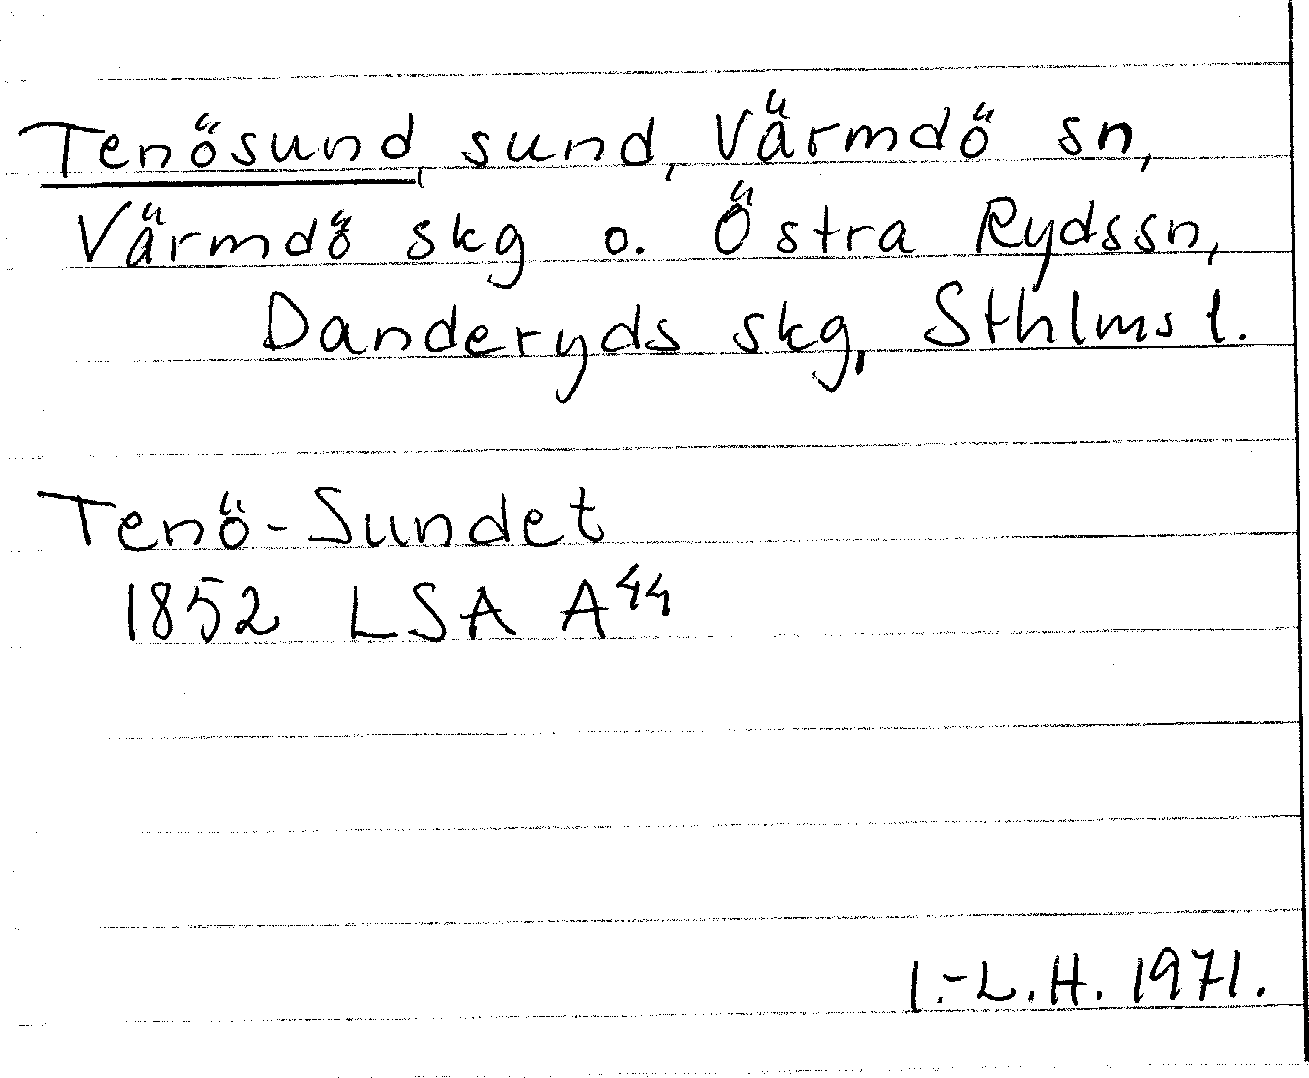 Tenösund, sund, Värmdö sn,
Värmdö skg o. Östra Rydssn,
Danderyds skg, Sthlms l.
Tenö-Sundet
1852 LSA A⁴⁴
I.-L.H. 1971.